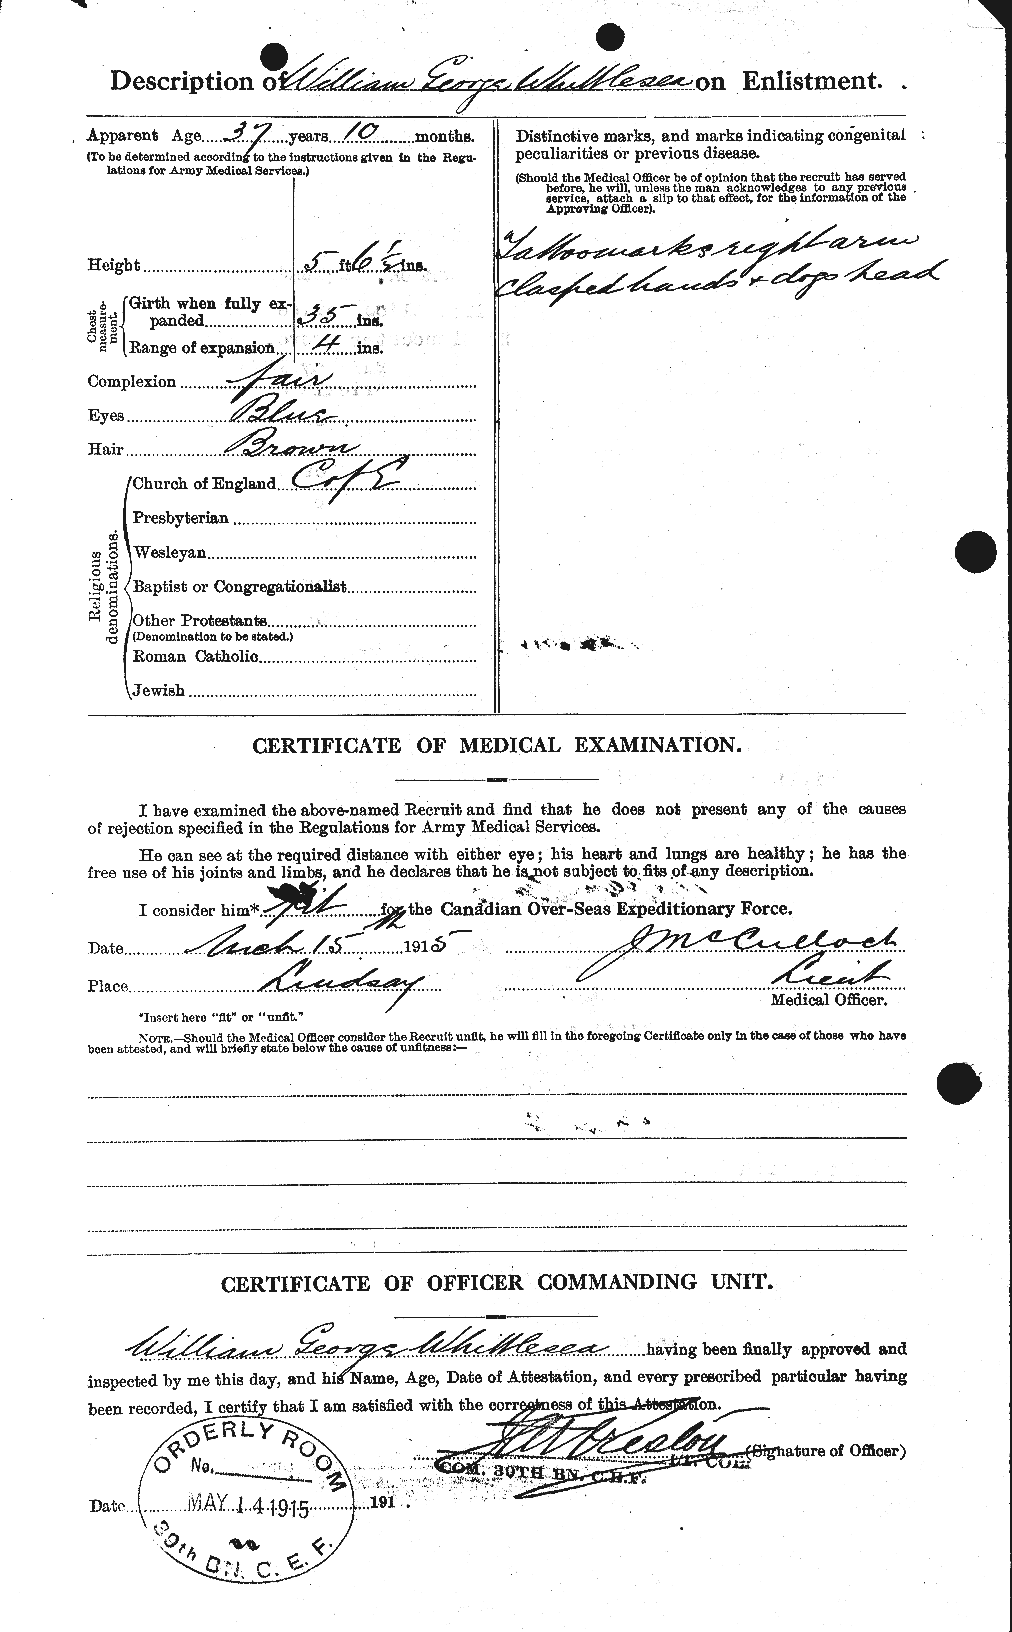 Description of William George Whittlesea on Enlistment.
Apparent Age 37 years 10 months.
(To be determined acording to the instructions given in the Regu-
lations for Army Medical Services.)
Height 5 ft 6 ½ ins.
Chest measurement
Girth when fully ex-
panded 35 ins.
Range of expansion 4 ins.
Complexion fair
Eyes Blue
Hair Brown
Religious denominations.
Church of England C of E
Presbyterian
Wesleyan
Baptist or Congregationalist
Other Protestants
(Denomination to be stated.)
Roman Catholic
Jewish
Distinctive marks, and marks indicating congenital
peculiarities or previous disease.
(Should the Medical Officer be of opinion that the recruit has served
before, he will, unless the man acknowledges to any previous
service, attach a slip to that effect, for the information of the
Approving Officer).
Tattoo marks right arm
clasped hands + dogs head
CERTIFICATE OF MEDICAL EXAMINATION.
I have examined the above-named Recruit and find that he does not present any of the causes
of rejection specified in the Regulations for Army Medical Services.
He can see at the required distance with either eye; his heart and lungs are healthy; he has the
free use of his joints and limbs, and he declares that he is not subject to fits of any description.
I consider him* fit for the Canadian Over-Seas Expeditionary Force.
Date Mch 15th 1915 J McCulloch
Place Lindsay Lieut
Medical Officer.
*Insert here "fit" or "unfit."
NOTE.—Should the Medical Officer consider the Recruit unfit, he will fill in the foregoing Certificate only in the case of those who have
been attested, and will briefly state below the cause of unfitness:—
CERTIFICATE OF OFFICER COMMANDING UNIT.
William George Whittlesea having been finally approved and
inspected by me this day, and his Name, Age, Date of Attestation, and every prescribed particular having
been recorded, I certify that I am satisfied with the correctness of this Attestation.
Preston (Signature of Officer)
LT. COL.
COM. 39TH BN. C.E.F.
ORDERLY ROOM
No.
Date MAY 14 1915 191 .
39th BN. C. E. F.